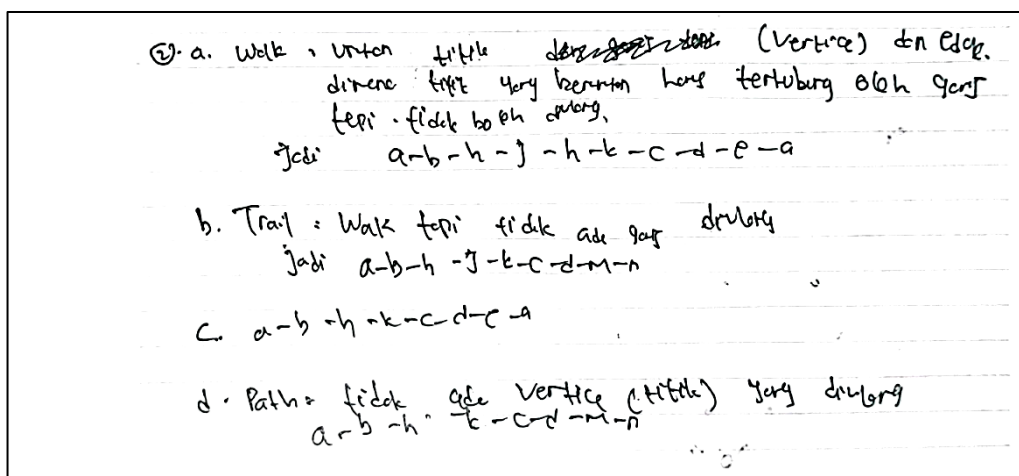 2. a. Walk : Urutan titik (vertice) dan edge.
dimana titik yang berurutan harus terhubung oleh garis
tepi. tidak boleh diulang.
Jadi a-b-h-j-h-k-c-d-e-a
b. Trail : Walk tapi tidak ada garis diulang
jadi a-b-h-j-k-c-d-m-n
c. a-b-h-k-c-d-e-a
d. Path = tidak ada vertice (titik) yang diulang
a-b-h-k-c-d-m-n